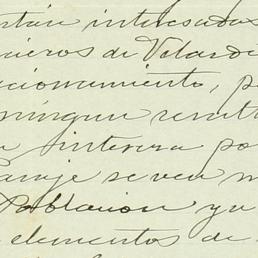 están interesados
nieros de Velard
cionamiento, p
ningun result
interesa po
paraje se ven m
Poblacion ya
elementos de